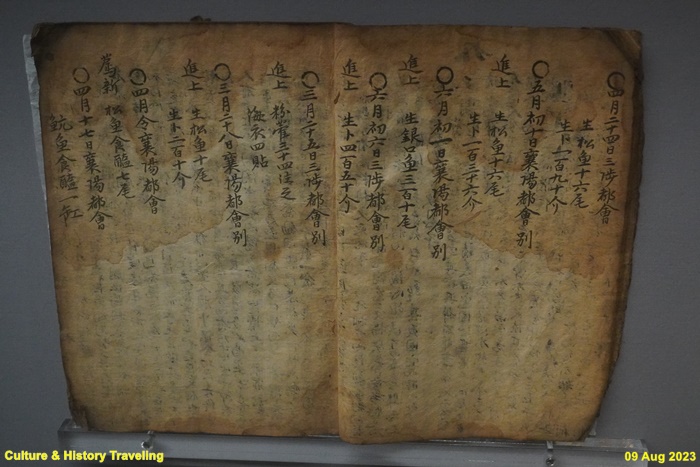 ○四月二十四日三陟都會
生松魚十六尾
生卜二百九十介
○五月初十日襄陽都會別
進上 生松魚十六尾
生卜二百三十六介
○六月初一日襄陽都會別
進上 生銀口魚三百十尾
○六月初六日三陟都會別
進上 生卜四百五十介
○三月二十五日三陟都會別
進上 粉藿三十四注之
海衣四貼
○三月二十八日襄陽都會別
進上 生松魚十尾
生卜二百十介
○四月令襄陽都會
薦新 松魚食醢七尾
○四月十七日襄陽都會
魚食醢一缸
Culture & History Traveling
09 Aug 2023